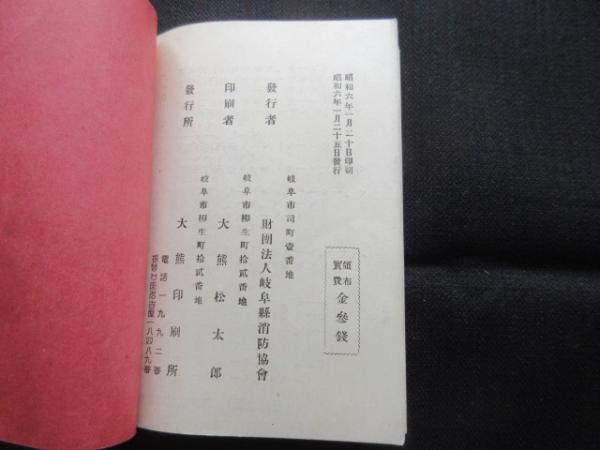 昭和六年一月二十日印刷
昭和六年一月二十五日發行
頒布
實費
金參錢
岐阜市司町壹番地
發行者
財團法人岐阜縣消防協會
岐阜市柳生町拾貳番地
印刷者
大熊松太郎
岐阜市柳生町拾貳番地
發行所
大熊印刷所
電話一九九二番
振替口座名古屋一八四八九番